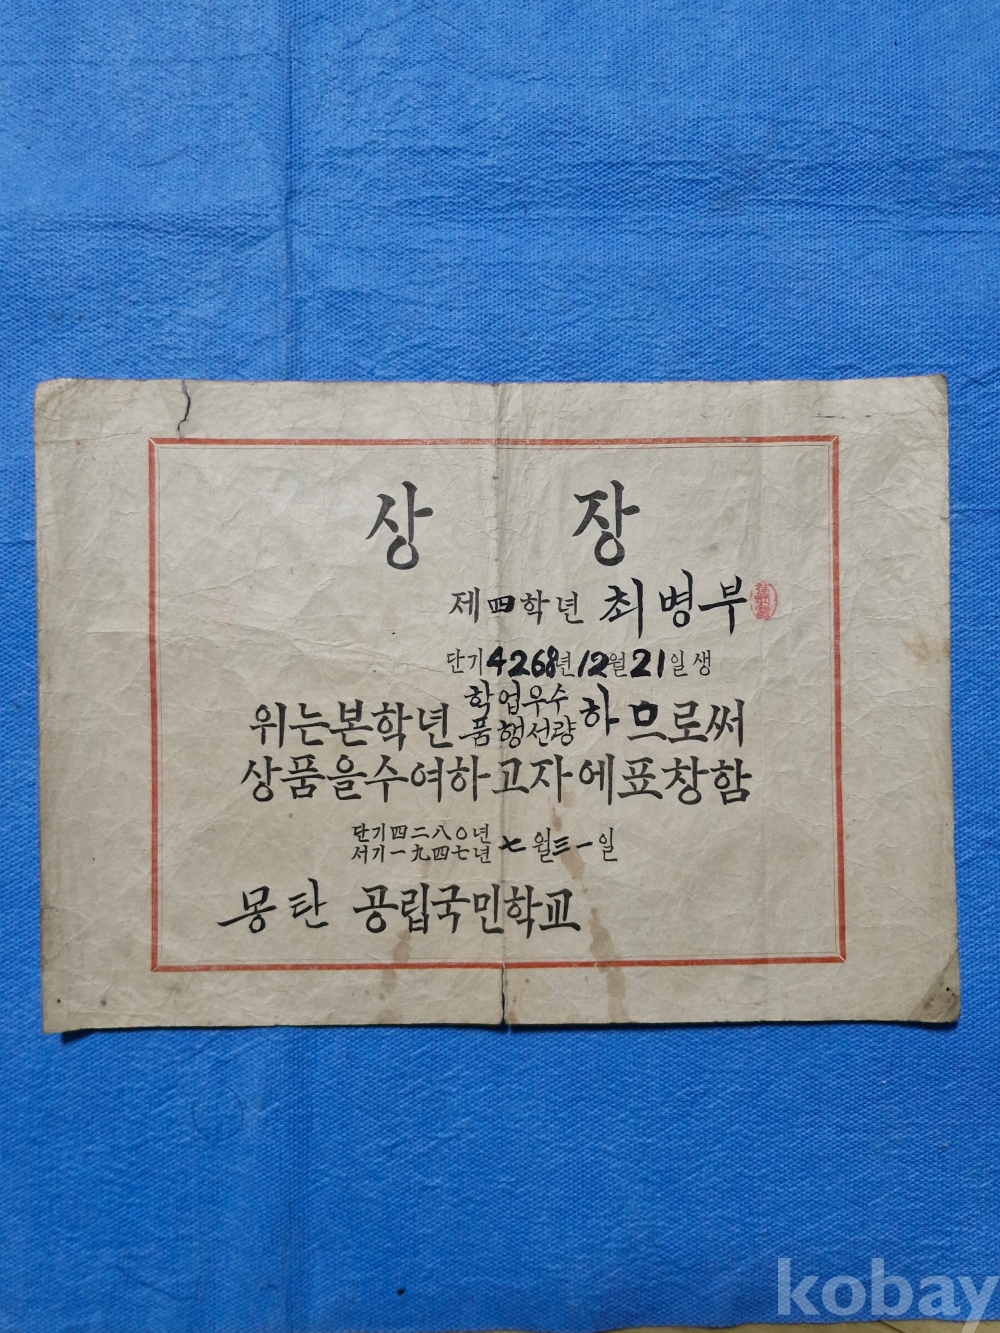 상 장
제四학년 최병부
단기4268년12월21일생
위는본학년 학업우수 품행선량 하므로써
상품을수여하고자에표창함
단기四二八〇년
서기一九四七년 七월三一일
몽탄 공립국민학교
kobay